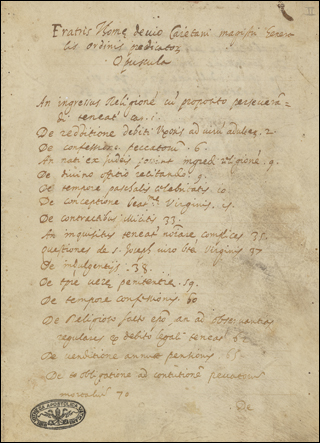 II
Fratris Thomę devio Caietani magistri Genera
lis ordinis prędicatoꝝ
Opuscula
An ingressus Religionē cū proposito perseverā-
di teneat
De redditione debiti Uxoris ad virū adulteꝝ. 2
De confessione peccatoꝝ. 6.
An nati ex Judeis possint ingredi religionē. 9.
De divino officio celebrando. 9.
De tempore paschalis celebritatis. 10.
De conceptione beatę Virginis. 15.
De contractibus illicitis 33.
An inquisitus teneat notare complices 35.
questiones de s. Joseph viro btę Virginis 37
De indulgentijs. 38.
De tpre verę penitentię. 59.
De tempore confessionis. 60
De Religioso facto epo, an ad observantia
regulares & debitū legal teneat 62
De venditione annuę pensionis 65.
De obligatione ad contritionē peccatorum
mortaliū 70
De